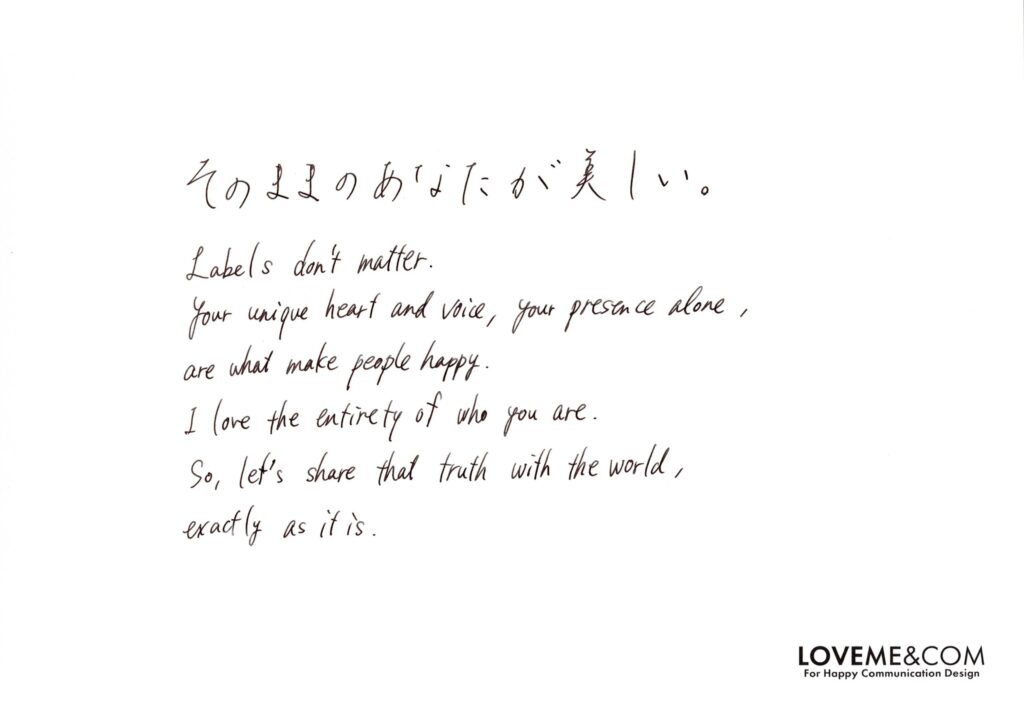 そのままのあなたが美しい。
Labels don't matter.
Your unique heart and voice, your presence alone,
are what make people happy.
I love the entirety of who you are.
So, let's share that truth with the world,
exactly as it is.
LOVEME&COM
For Happy Communication Design